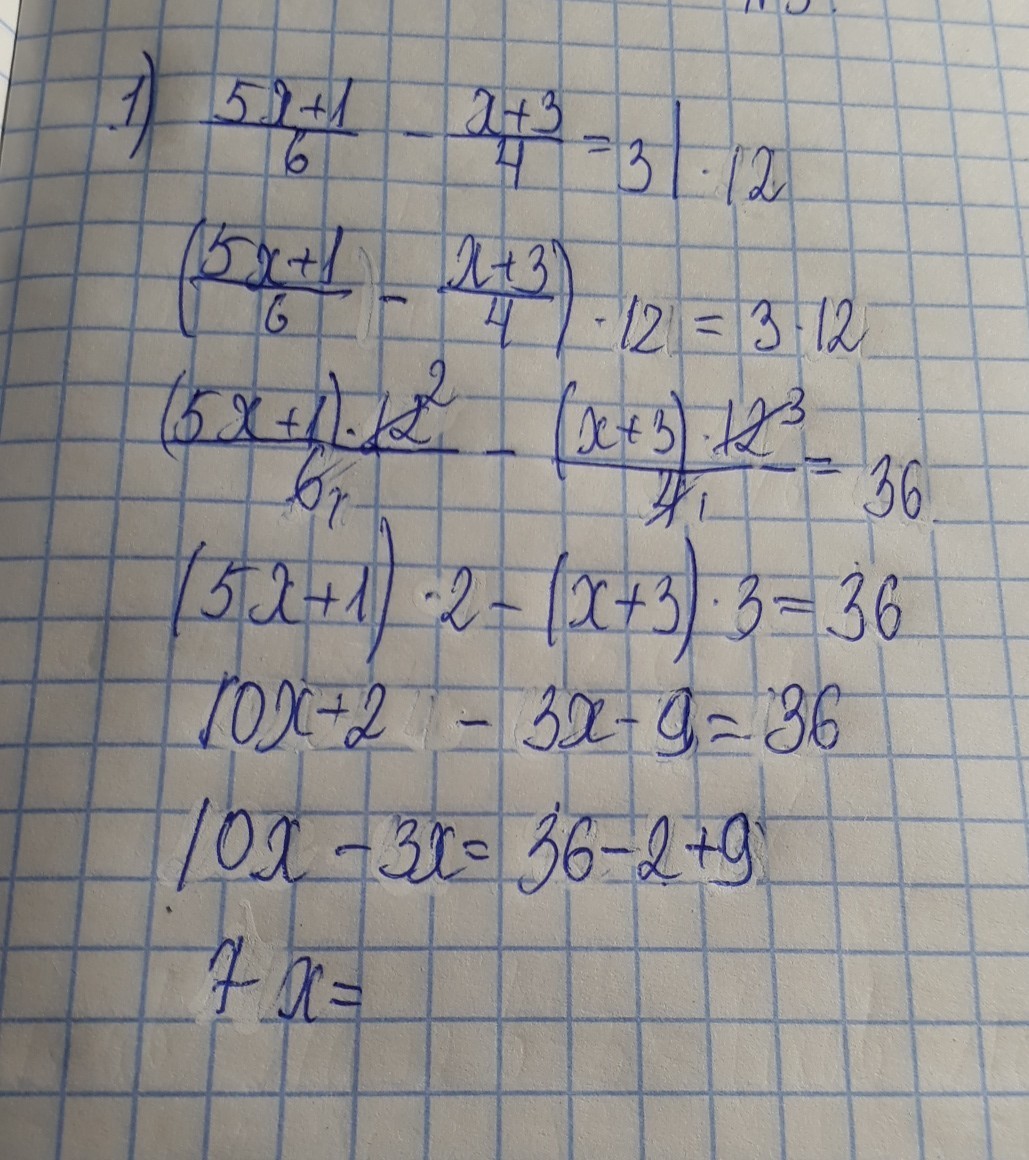 1) (5x+1)/6 - (x+3)/4 = 3 | · 12
((5x+1)/6 - (x+3)/4) · 12 = 3 · 12
((5x+1) · 12²)/6₁ - ((x+3) · 12³)/4₁ = 36
(5x+1) · 2 - (x+3) · 3 = 36
10x+2 - 3x - 9 = 36
10x - 3x = 36 - 2 + 9
7x =